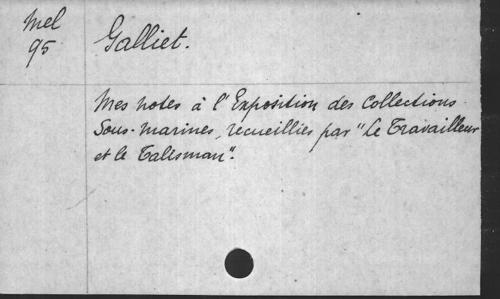 Mel
95
Galliet.
Mes notes à l'Exposition des Collections
Sous-marines, recueillies par "Le Travailleur
et le Talisman".